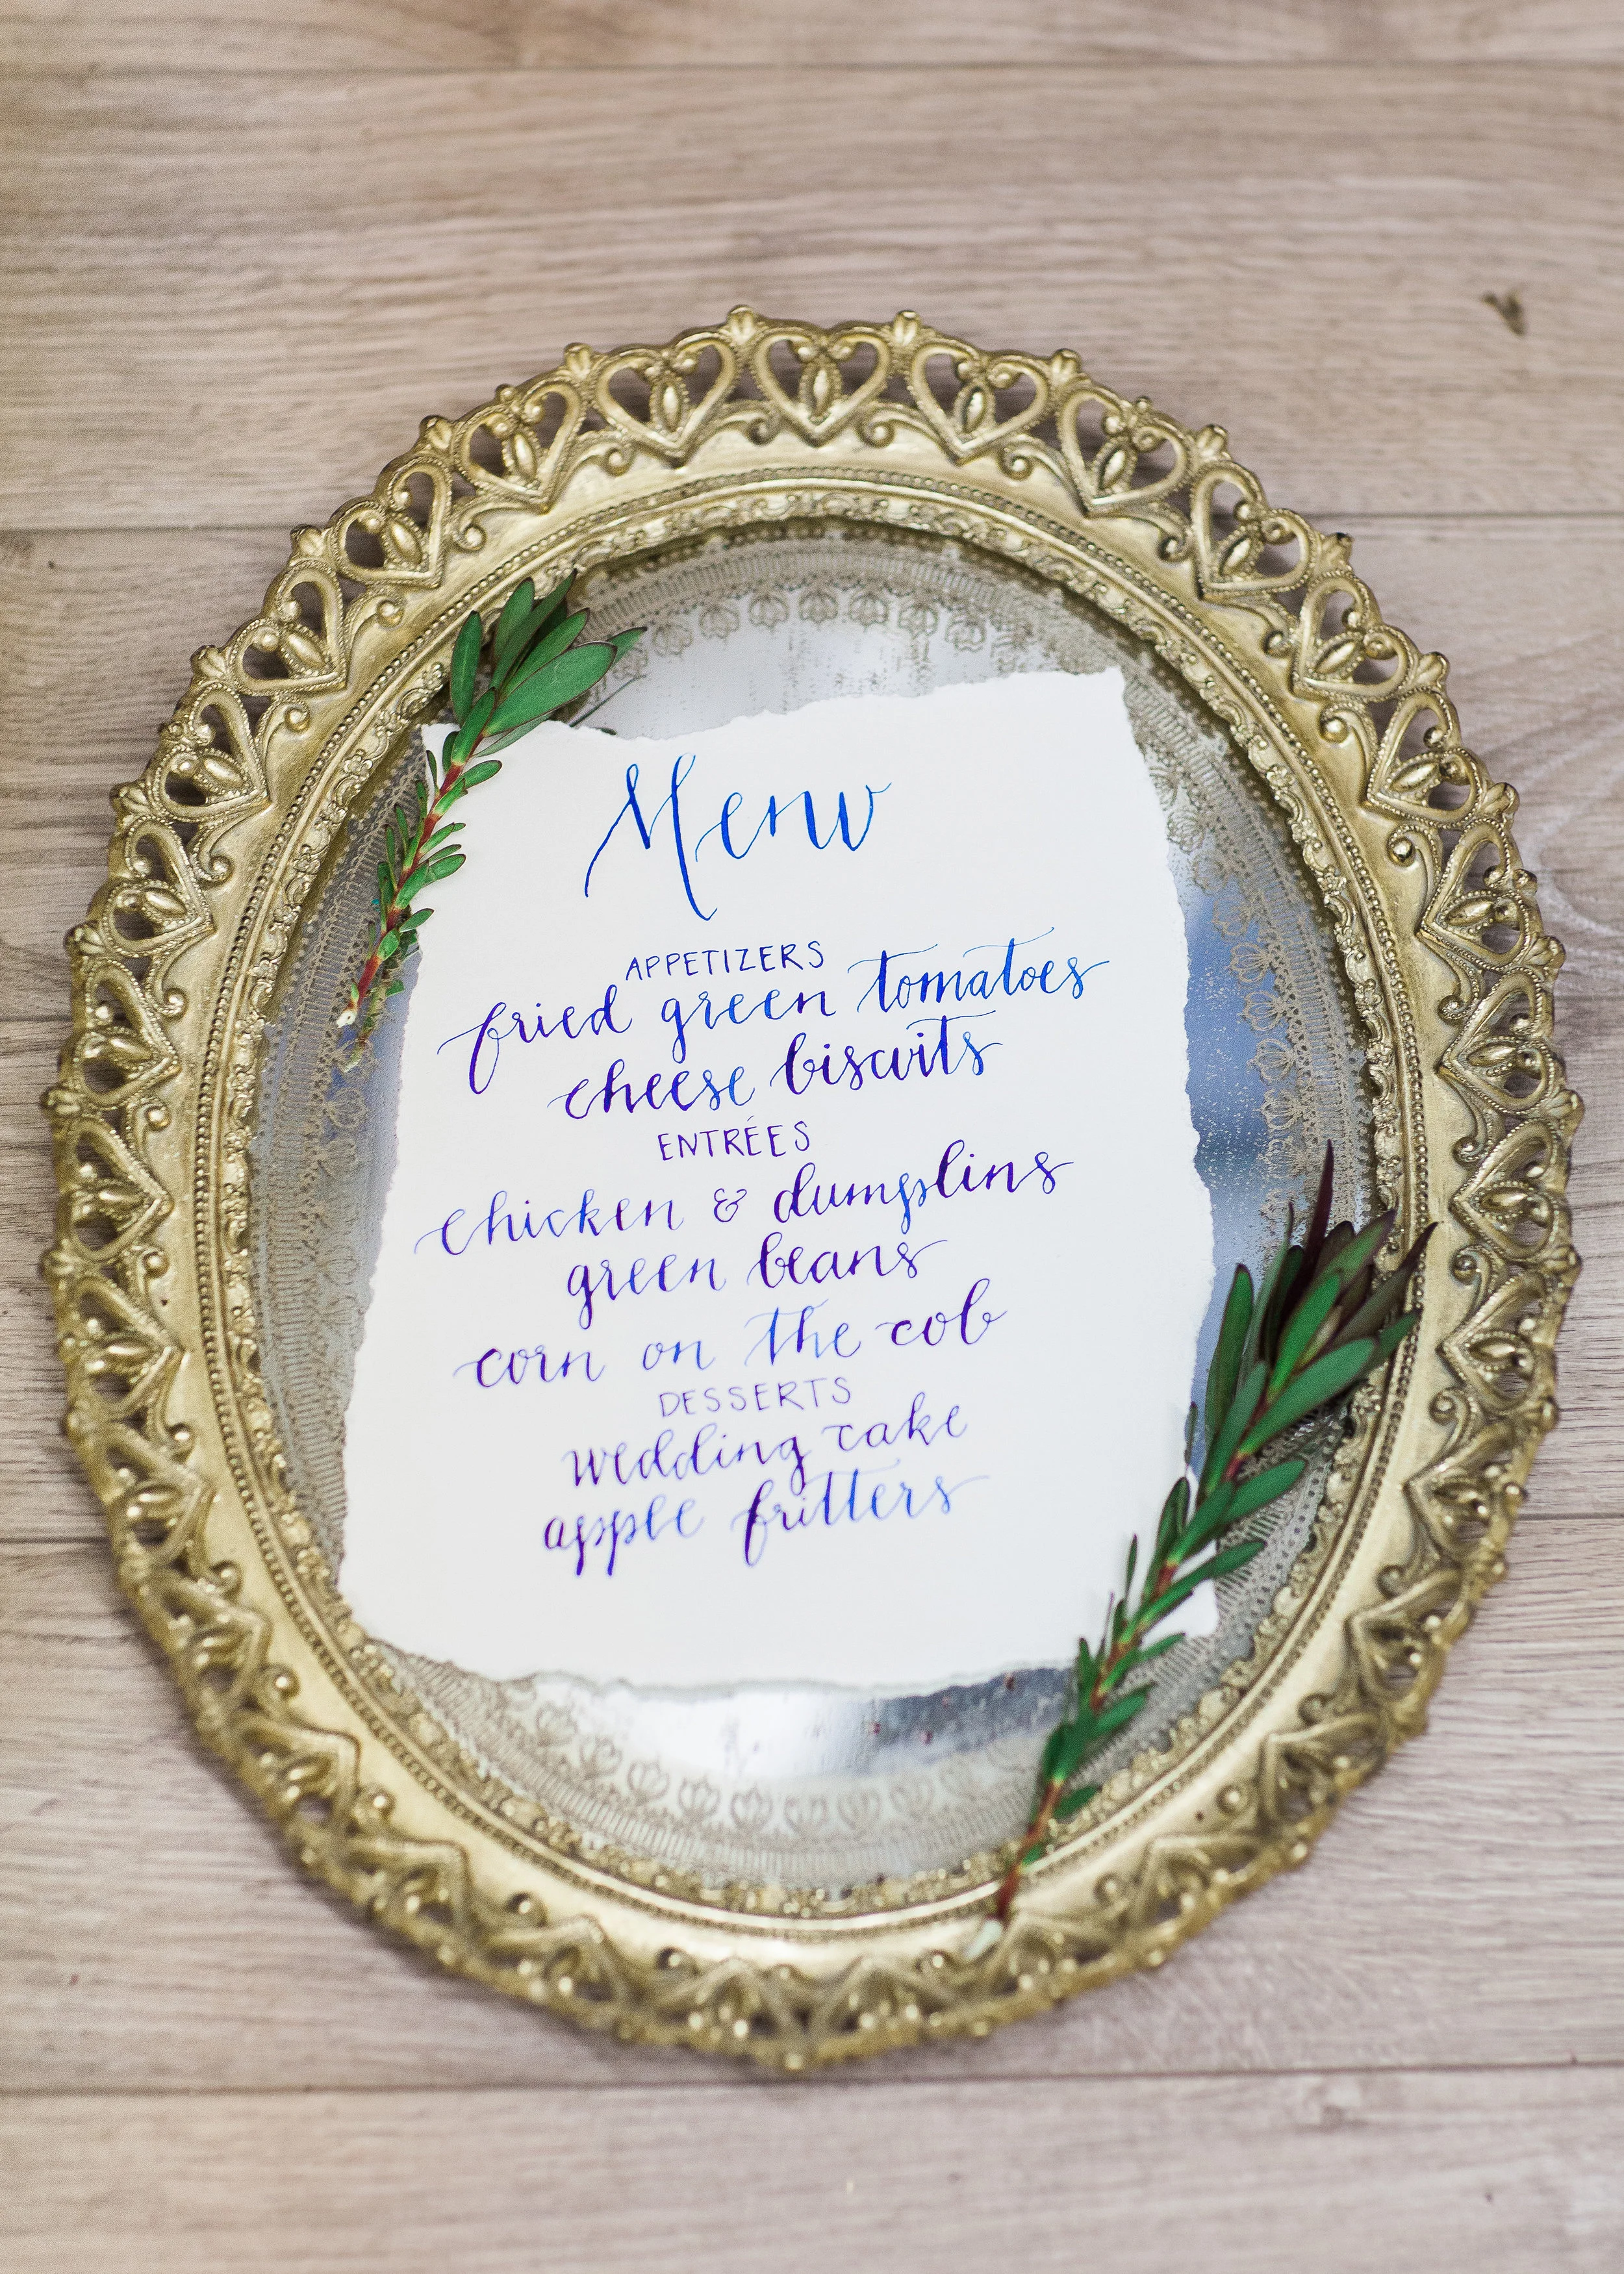 Menu
APPETIZERS
fried green tomatoes
cheese biscuits
ENTRÉES
chicken & dumplins
green beans
corn on the cob
DESSERTS
wedding cake
apple fritters